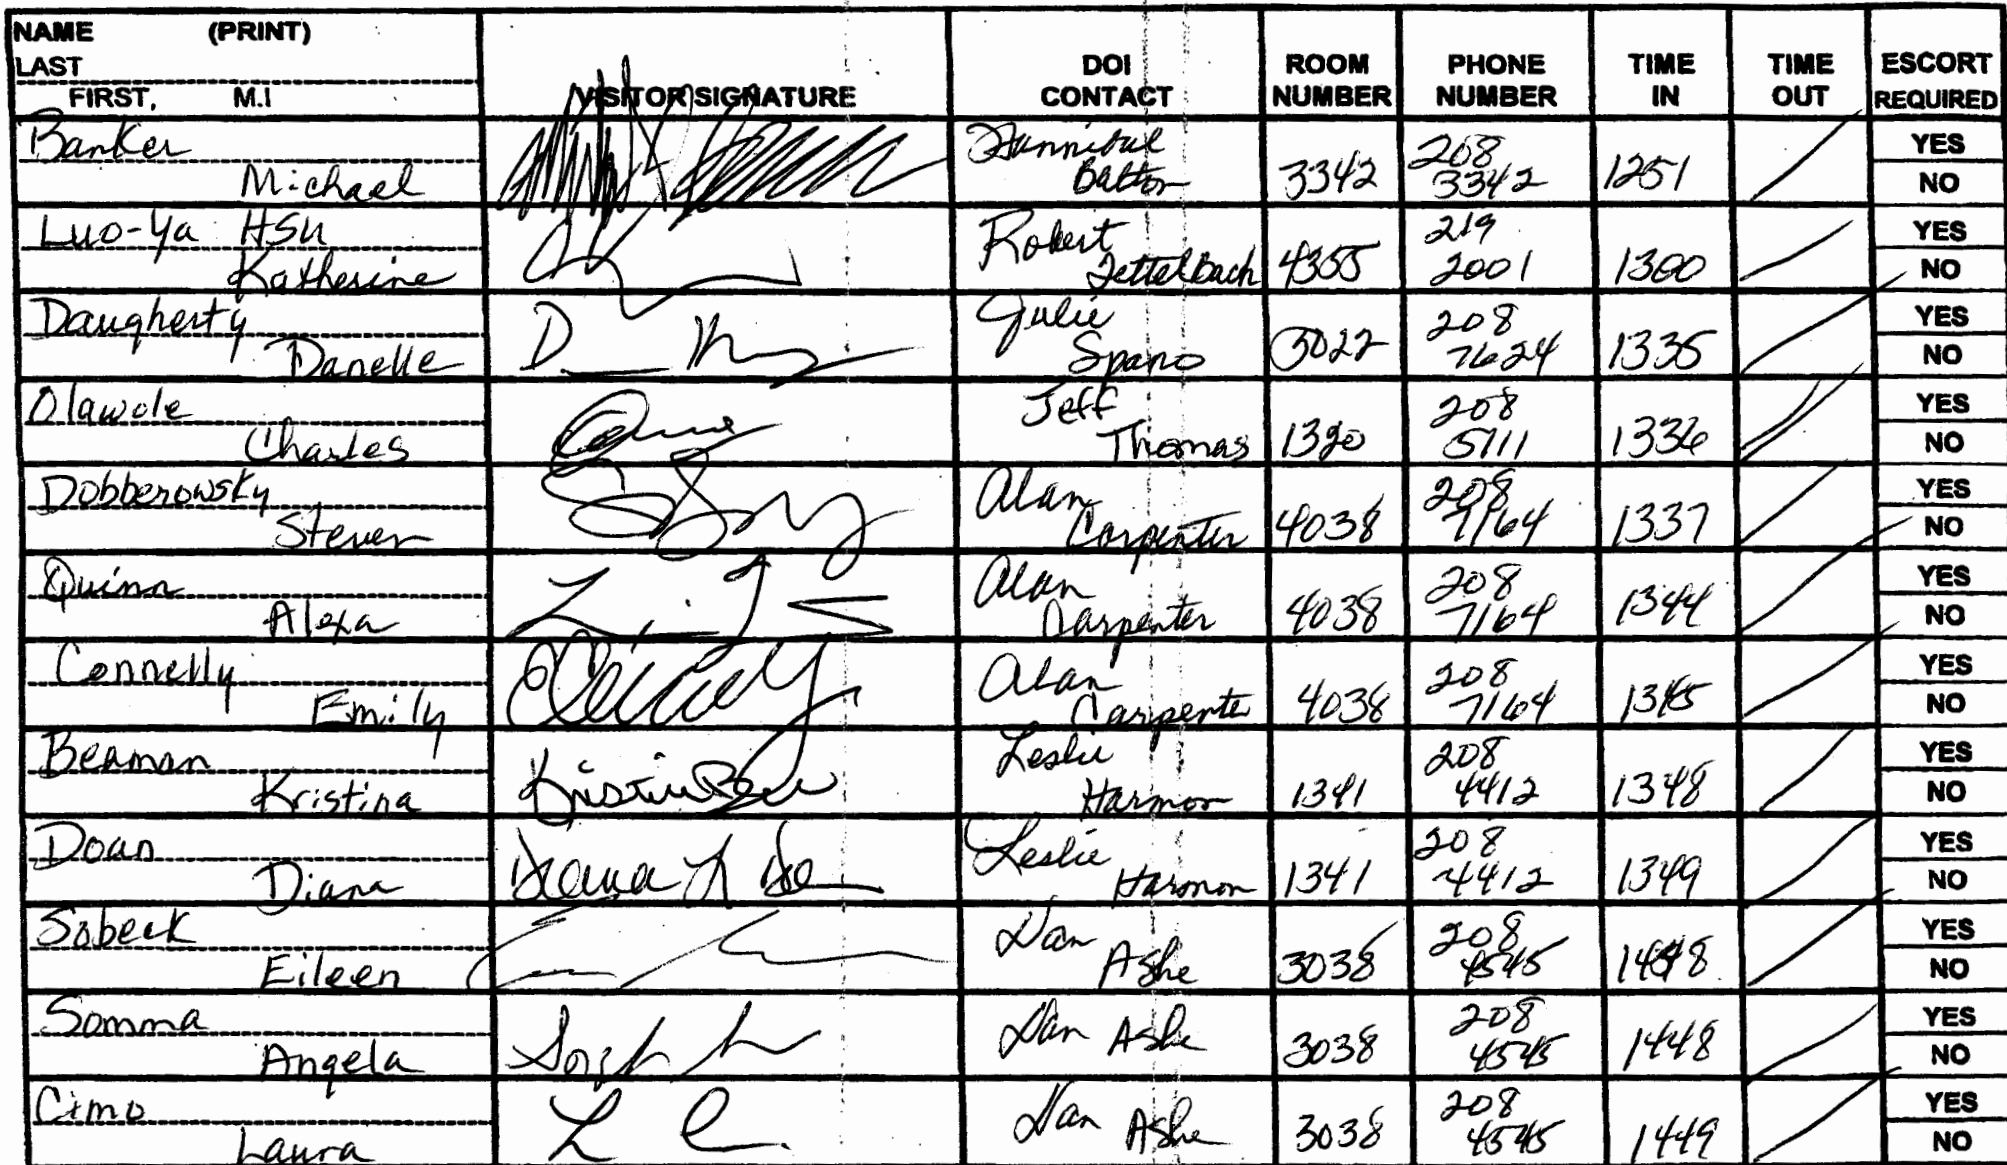 NAME (PRINT)
LAST
FIRST, M.I
VISITOR SIGNATURE
DOI
CONTACT
ROOM
NUMBER
PHONE
NUMBER
TIME
IN
TIME
OUT
ESCORT
REQUIRED
Banker
Michael
Hannibal
Bolton
3342
208
3342
1251
YES
NO
Luo-Ya HSu
Katherine
Robert
Fettelbach
4355
219
2001
1300
YES
NO
Daugherty
Danelle
Julie
Spano
3022
208
7624
1335
YES
NO
Olawole
Charles
Jeff
Thomas
1320
208
5111
1336
YES
NO
Dobberowsky
Steven
Alan
Carpenter
4038
208
7164
1337
YES
NO
Quinn
Alexa
Alan
Carpenter
4038
208
7164
1344
YES
NO
Connelly
Emily
Alan
Carpenter
4038
208
7164
1345
YES
NO
Beaman
Kristina
Leslie
Harmon
1341
208
4412
1348
YES
NO
Doan
Diana
Leslie
Harmon
1341
208
4412
1349
YES
NO
Sobeck
Eileen
Dan
Ashe
3038
208
4545
1448
YES
NO
Somma
Angela
Dan Ashe
3038
208
4545
1448
YES
NO
Cimo
Laura
Dan Ashe
3038
208
4545
1449
YES
NO